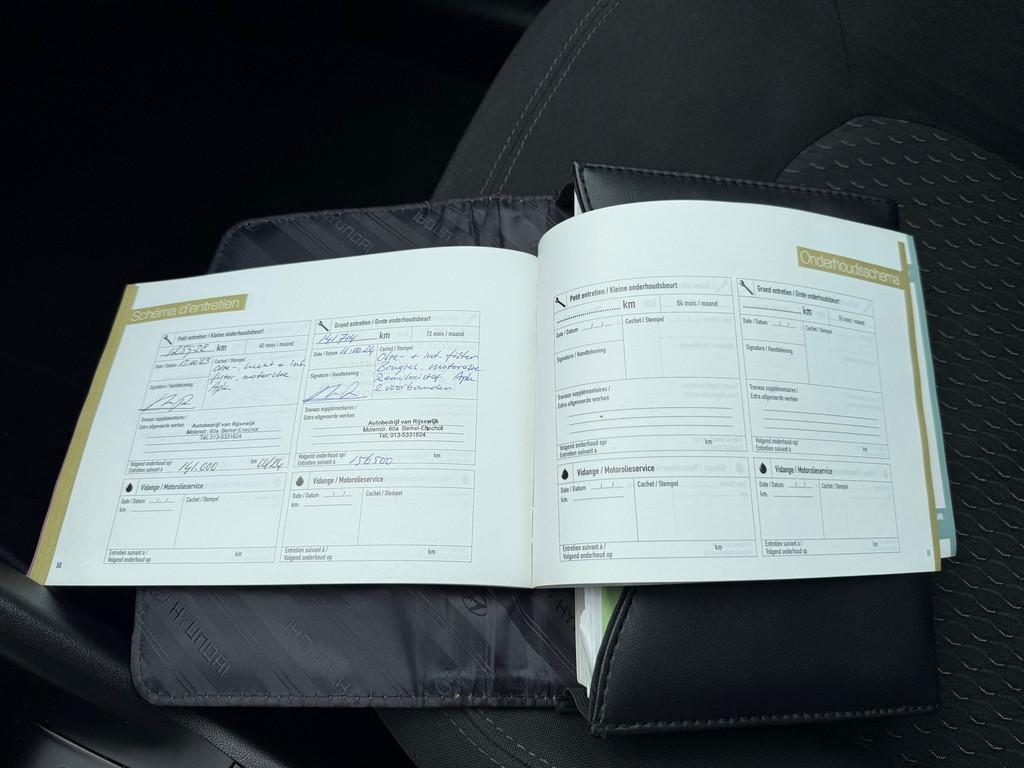 Schéma d'entretien
Petit entretien / Kleine onderhoudsbeurt
km
60 mois / maand
Date / Datum
Cachet / Stempel
Olie-, lucht + int.
filter, motorolie
Apk
Signature / Handtekening
Travaux supplémentaires /
Extra uitgevoerde werken
Autobedrijf van Rijsewijk
Molenstr. 60a Berkel-Enschot
Tel; 013-5331824
Volgend onderhoud op/
Entretien suivant à
141.000 km
Vidange / Motorolieservice
Date / Datum
Cachet / Stempel
km:
Entretien suivant à /
Volgend onderhoud op
km
50
Grand entretien / Grote onderhoudsbeurt
km
72 mois / maand
Date / Datum 11.10.24
Cachet / Stempel
Olie- + int. filter
Bougies, motorolie
Remvloeistof, Apk
2 voorbanden
Signature / Handtekening
Travaux supplémentaires /
Extra uitgevoerde werken
Autobedrijf van Rijsewijk
Molenstr. 60a Berkel-Enschot
Tel; 013-5331824
Volgend onderhoud op/
Entretien suivant à
156500 km
Vidange / Motorolieservice
Date / Datum
Cachet / Stempel
km:
Entretien suivant à /
Volgend onderhoud op
km
Onderhoudsschema
Petit entretien / Kleine onderhoudsbeurt
km
84 mois / maand
Date / Datum
Cachet / Stempel
Signature / Handtekening
Travaux supplémentaires /
Extra uitgevoerde werken
Volgend onderhoud op/
Entretien suivant à
km
Vidange / Motorolieservice
Date / Datum
Cachet / Stempel
km:
Entretien suivant à /
Volgend onderhoud op
km
Grand entretien / Grote onderhoudsbeurt
km
96 mois / maand
Date / Datum
Cachet / Stempel
Signature / Handtekening
Travaux supplémentaires /
Extra uitgevoerde werken
Volgend onderhoud op/
Entretien suivant à
km
Vidange / Motorolieservice
Date / Datum
Cachet / Stempel
km:
Entretien suivant à /
Volgend onderhoud op
km
HYUNDAI
HYUNDAI